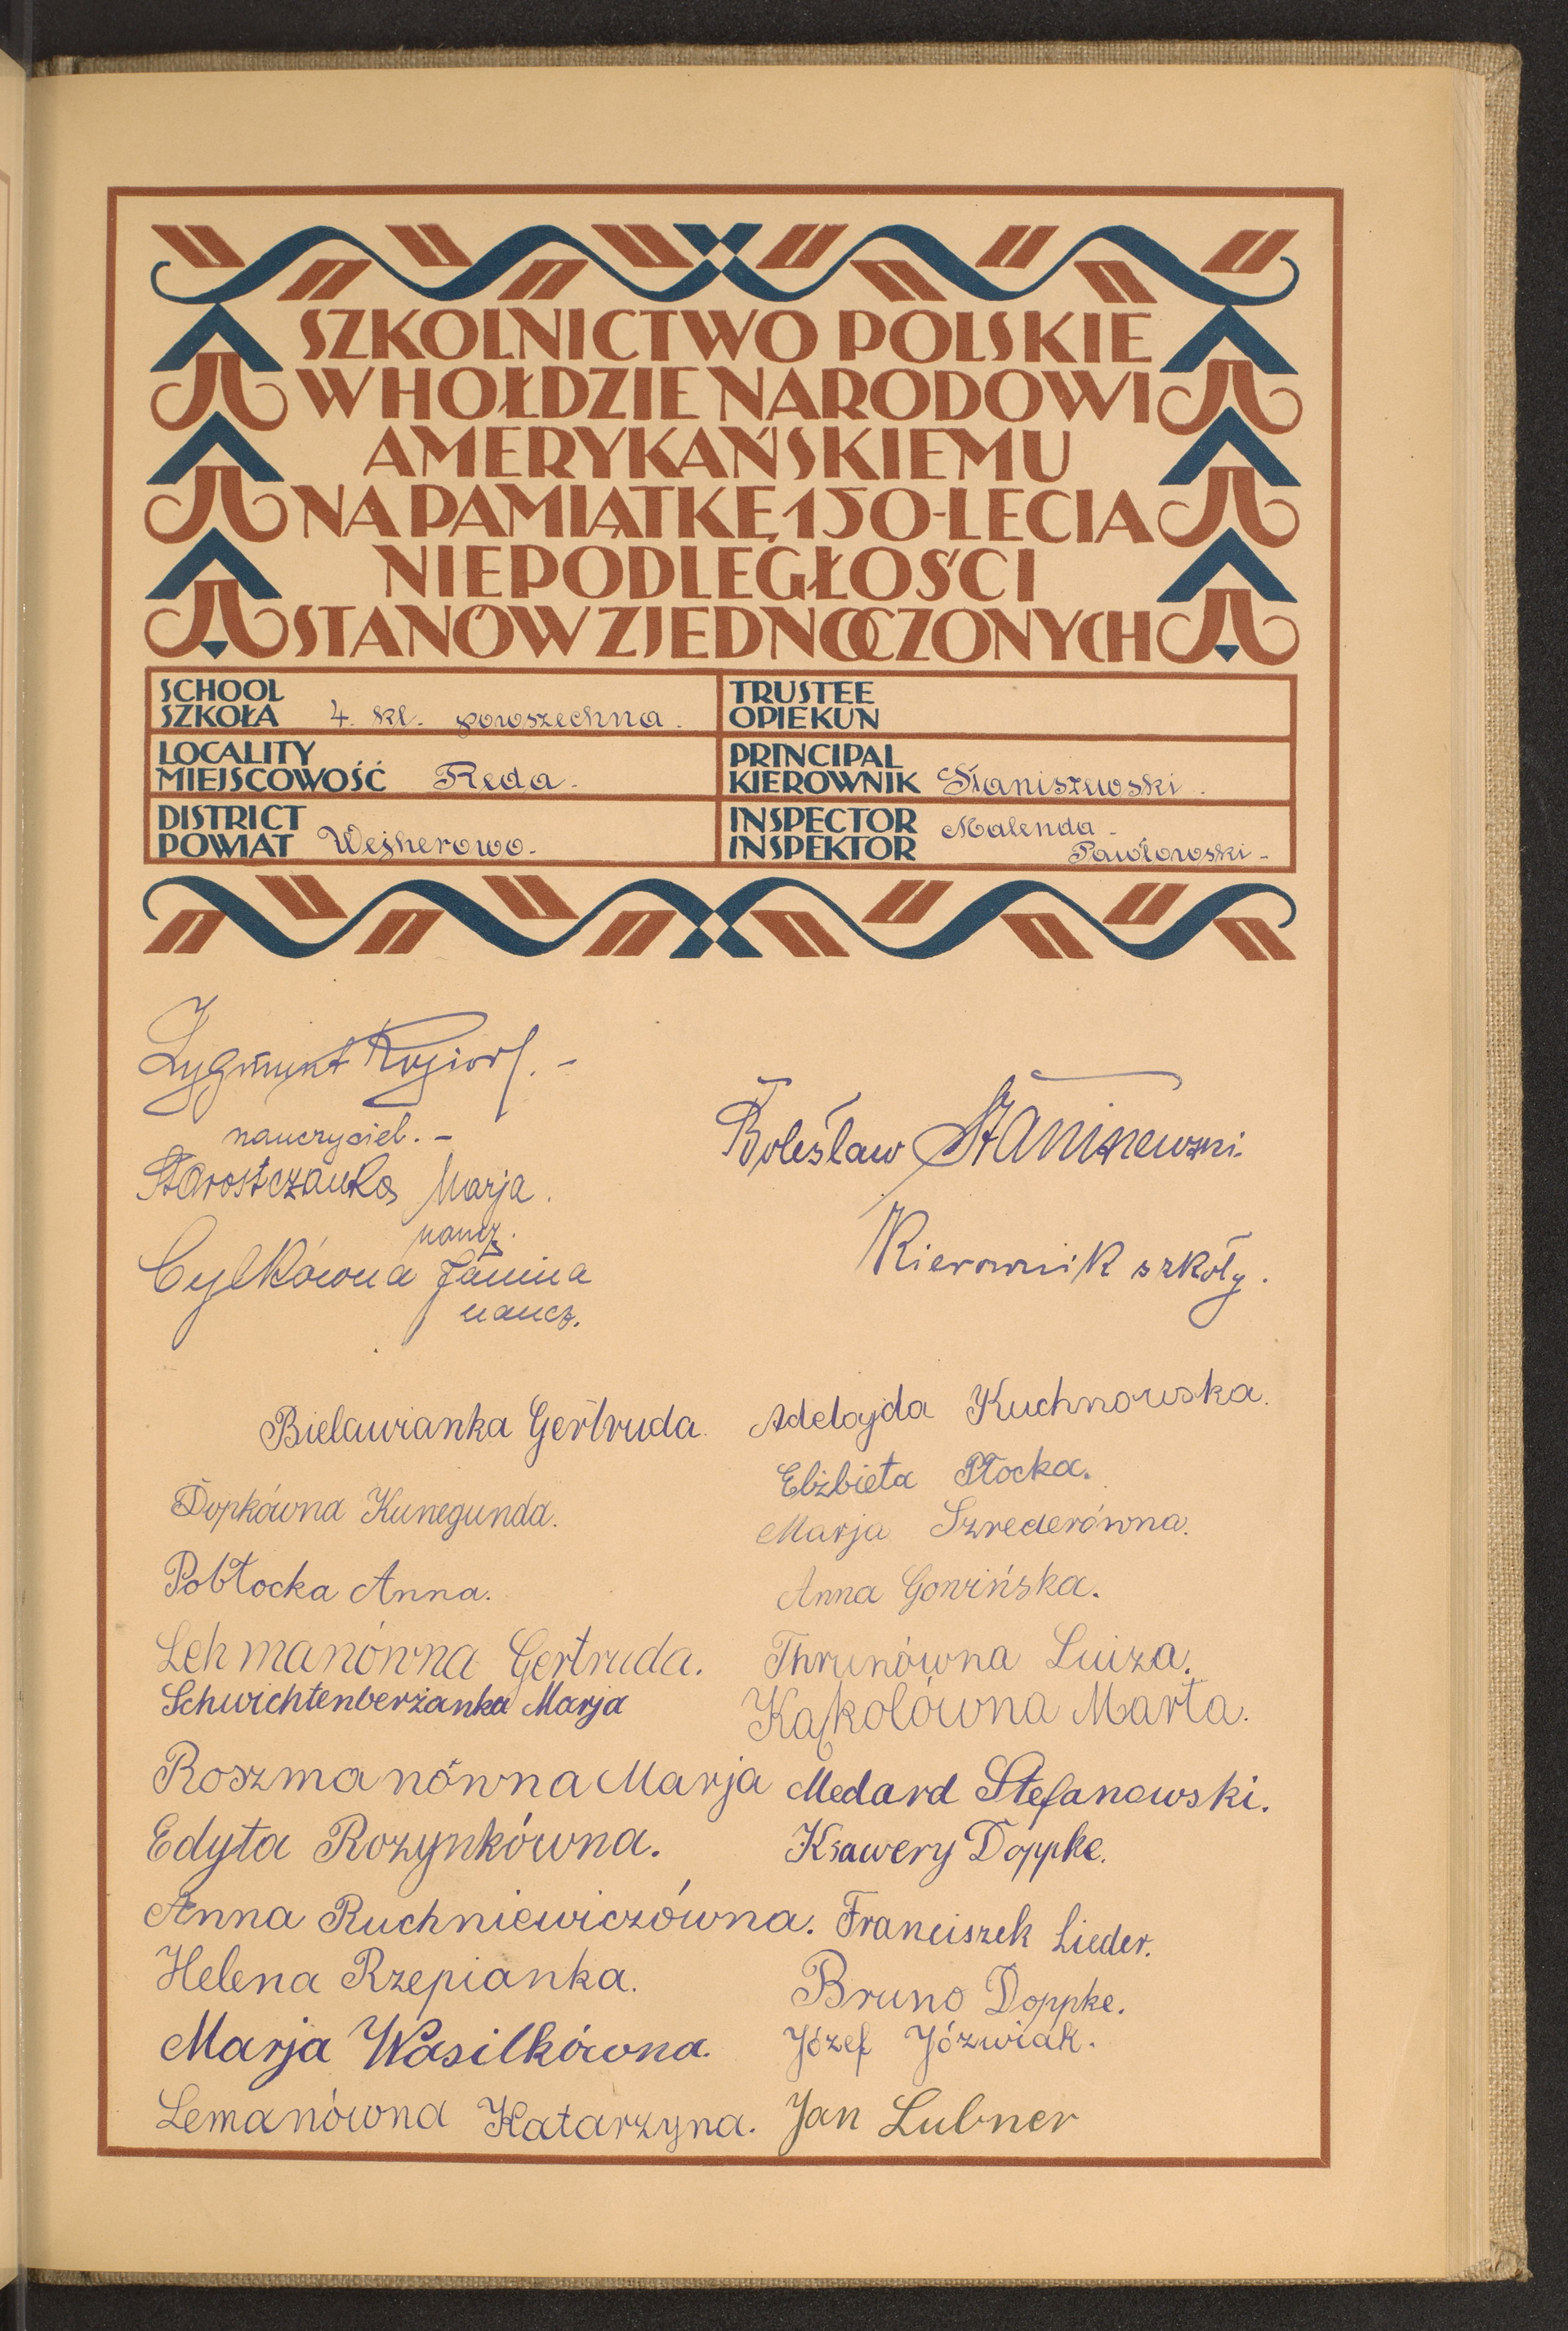 SZKOLNICTWO POLSKIE
W HOŁDZIE NARODOWI
AMERYKAŃSKIEMU
NA PAMIĄTKĘ 150-LECIA
NIEPODLEGŁOŚCI
STANÓW ZJEDNOCZONYCH
SCHOOL
SZKOŁA 4. kl. powszechna.
TRUSTEE
OPIEKUN
LOCALITY
MIEJSCOWOŚĆ Reda.
PRINCIPAL
KIEROWNIK Staniszewski.
DISTRICT
POWIAT Wejherowo.
INSPECTOR Malenda -
INSPEKTOR Pawłowski -
Zygmunt
nauczyciel. -
Starostczanka Marja.
naucz.
Cylkówna Janina
naucz.
Bolesław Staniszewski.
Kierownik szkoły.
Bielawianka Gertruda.
Dopkówna Kunegunda.
Pobłocka Anna.
Lehmanówna Gertruda.
Schwichtenberżanka Marja
Roszmanówna Marja
Edyta Rozynkówna.
Anna Ruchniewiczówna.
Helena Rzepianka.
Marja Wasilkówna.
Lemanówna Katarzyna.
Adelajda Kuchnowska.
Elżbieta Płocka.
Marja Szrederówna.
Anna Gowińska.
Thrunówna Luiza.
Kąkolówna Marta.
Medard Stefanowski.
Ksawery Doppke.
Franciszek Lieder.
Bruno Doppke.
Józef Józwiak.
Jan Lubner